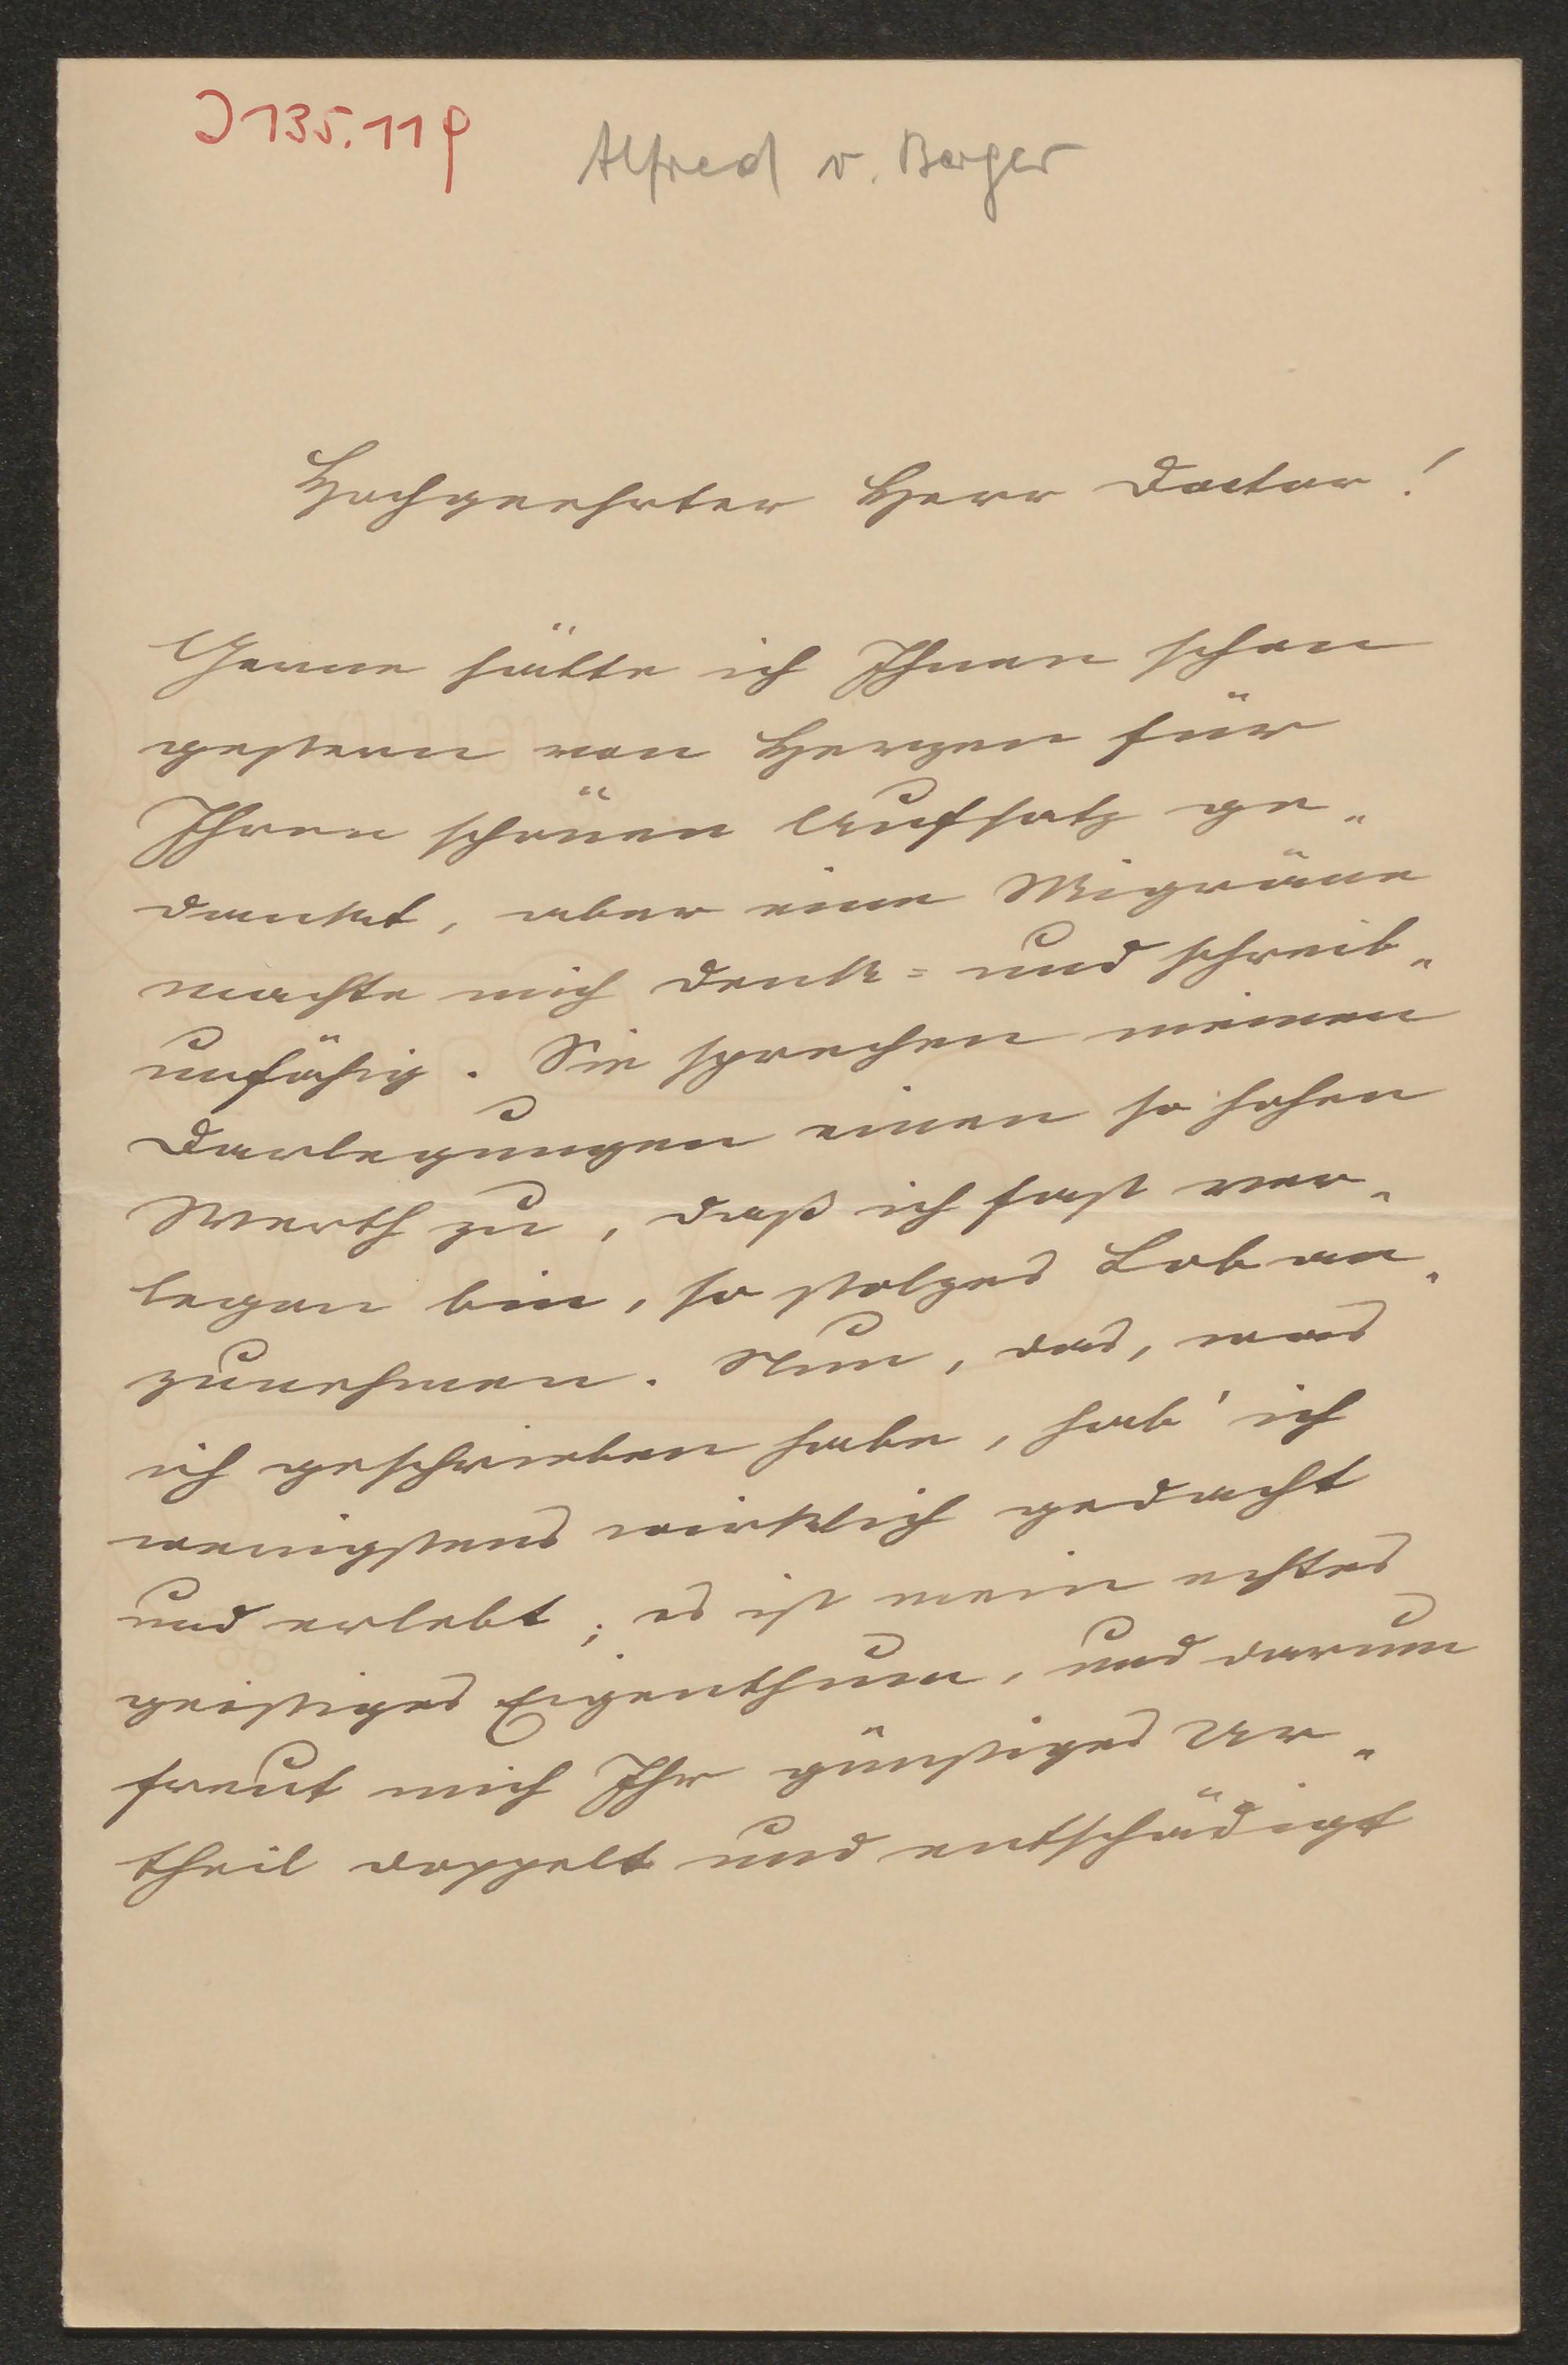 J 135.119
Alfred v. Berger
Hochgeehrter Herr Doctor!
Gerne hätte ich Ihnen schon
gestern von Herzen für
Ihren schönen Aufsatz ge-
dankt, aber eine Migräne
machte mich denk- und schreib-
unfähig. Sie sprechen meinen
Darlegungen einen so hohen
Werth zu, daß ich fast ver-
legen bin, so stolzes Lob an-
zunehmen. Nun, das, was
ich geschrieben habe, hab' ich
wenigstens wirklich gedacht
und erlebt; es ist mein echtes
geistiges Eigenthum, und darum
freut mich Ihr günstiges Ur-
theil doppelt und entschädigt